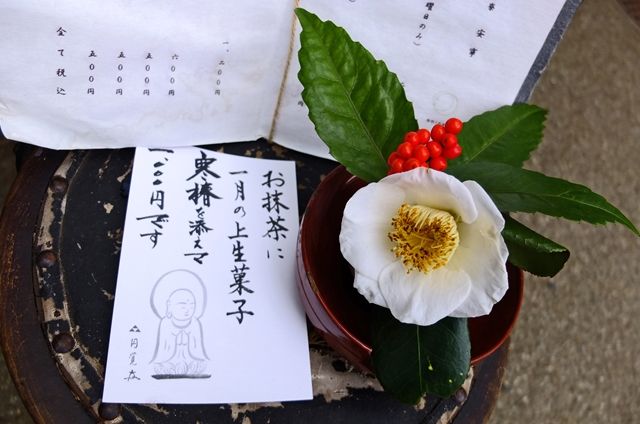 曜日のみ）
一、二〇〇円
六〇〇円
五〇〇円
五〇〇円
五〇〇円
全て税込
お抹茶に
一月の上生菓子
寒椿を添えて
円です